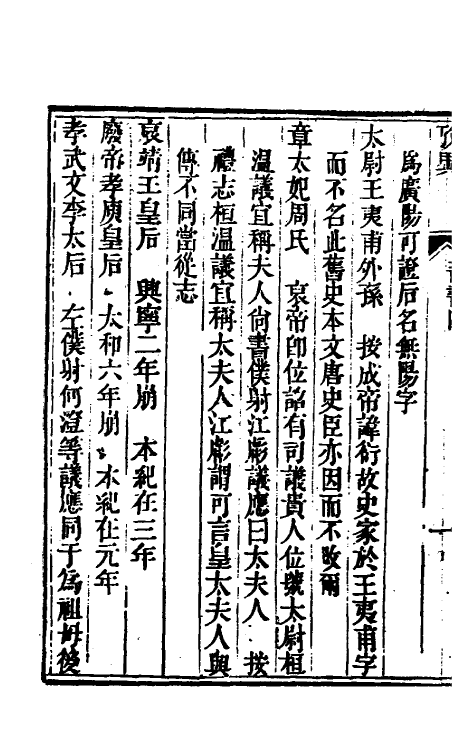 爲廣陽可證后名無陽字
太尉王夷甫外孫　按成帝諱衍故史家於王夷甫字
而不名此舊史本文唐史臣亦因而不改爾
章太妃周氏　哀帝即位詔有司議貴人位號太尉桓
溫議宜稱夫人尚書僕射江虨議應曰太夫人　按
禮志桓溫議宜稱太夫人江虨謂可言皇太夫人與
傳不同當從志
哀靖王皇后　興寧二年崩　本紀在三年
廢帝孝庾皇后　太和六年崩　本紀在元年
孝武文李太后　左僕射何澄等議應同于爲祖母後